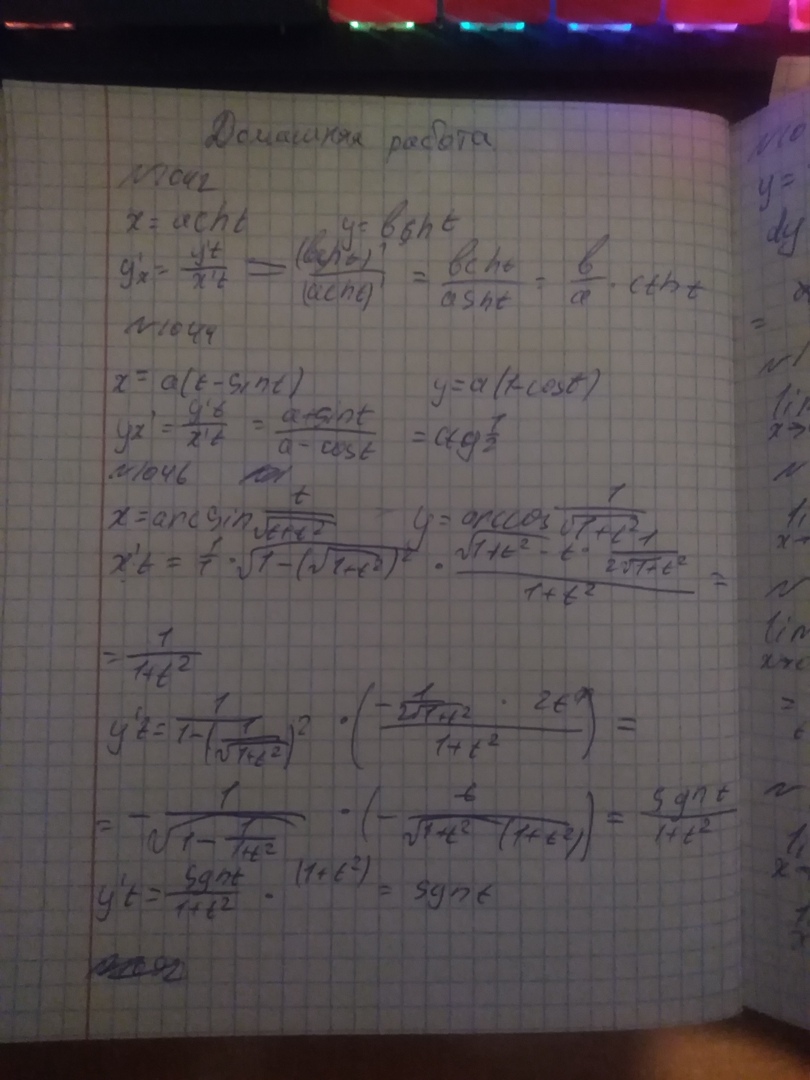 Домашняя работа
N1042
x = a ch t y = b sh t
y'x = y't / x't = (b sh t)' / (a ch t)' = b ch t / a sh t = b/a · cth t
N1044
x = a(t - sin t) y = a(1-cost)
yx' = y't / x't = a+sin t / a - cost = ctg t/2
N1046
x = arcsin t/√1+t² y = arccos 1/√1+t²
x't = 1/1 · √1-(√1+t²)² · (√1+t² - t · 1/2√1+t²) / 1+t² =
= 1/1+t²
y't = 1 / 1-(1/√1+t²)² · (- 1/2√1+t² · 2t / 1+t²) =
= - 1/√1 - 1/1+t² · (- t/√1+t² (1+t²)) = sgn t / 1+t²
y't = sgn t / 1+t² · (1+t²) = sgn t
y =
dy
=
lim
lim
=